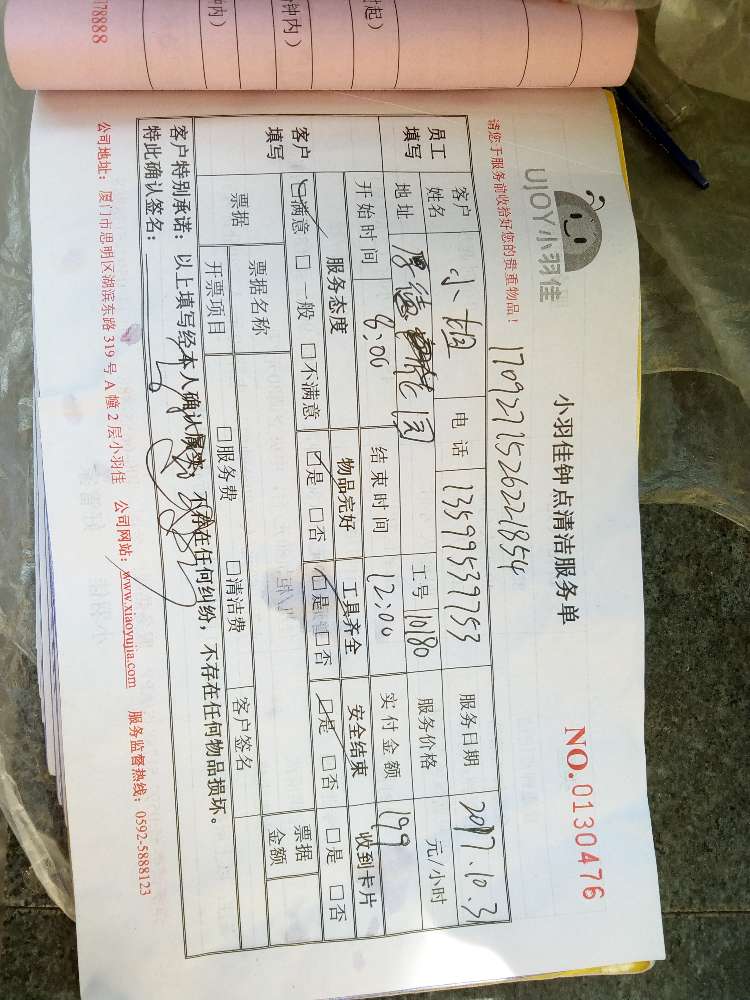 178888
钟内）
钟内）
时起）
UJOY小羽佳
小羽佳钟点清洁服务单
NO.0130476
请您于服务前收拾好您的贵重物品！
1709271526221854
员工填写
客户姓名 小姐 电话 13599539753 服务日期 2017.10.31
地址 厚德 花园 工号 10180 服务价格 元/小时
开始时间 8:00 结束时间 12:00 实付金额 199
客户填写
服务态度 物品完好 工具齐全 安全结束 收到卡片
☑满意 □一般 □不满意 ☑是 □否 ☑是 □否 ☑是 □否 □是 □否
票据 票据名称 客户签名 票据金额
开票项目 □服务费 □清洁费
客户特别承诺：以上填写经本人确认属实，不存在任何纠纷，不存在任何物品损坏。
特此确认签名：
公司地址：厦门市思明区湖滨东路 319 号 A 幢 2 层小羽佳 公司网站：www.xiaoyujia.com 服务监督热线：0592-5888123